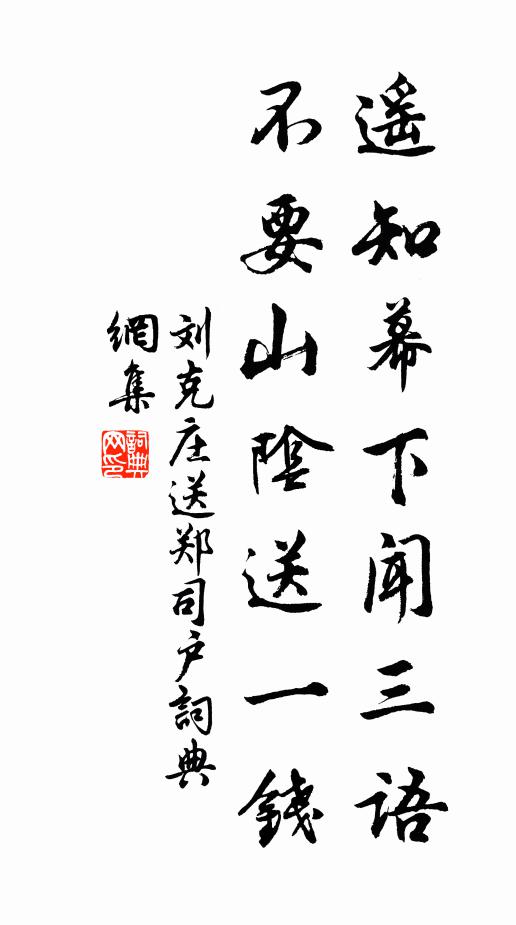 遥知幕下聞三語
不要山陰送一錢
刘克庄送郑司户詞典
網集
詞典
网印